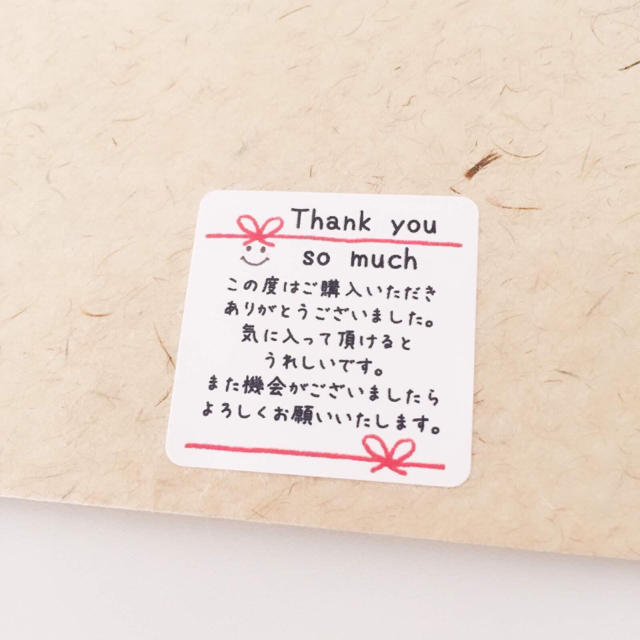 Thank you
so much
この度はご購入いただき
ありがとうございました。
気に入って頂けると
うれしいです。
また機会がございましたら
よろしくお願いいたします。